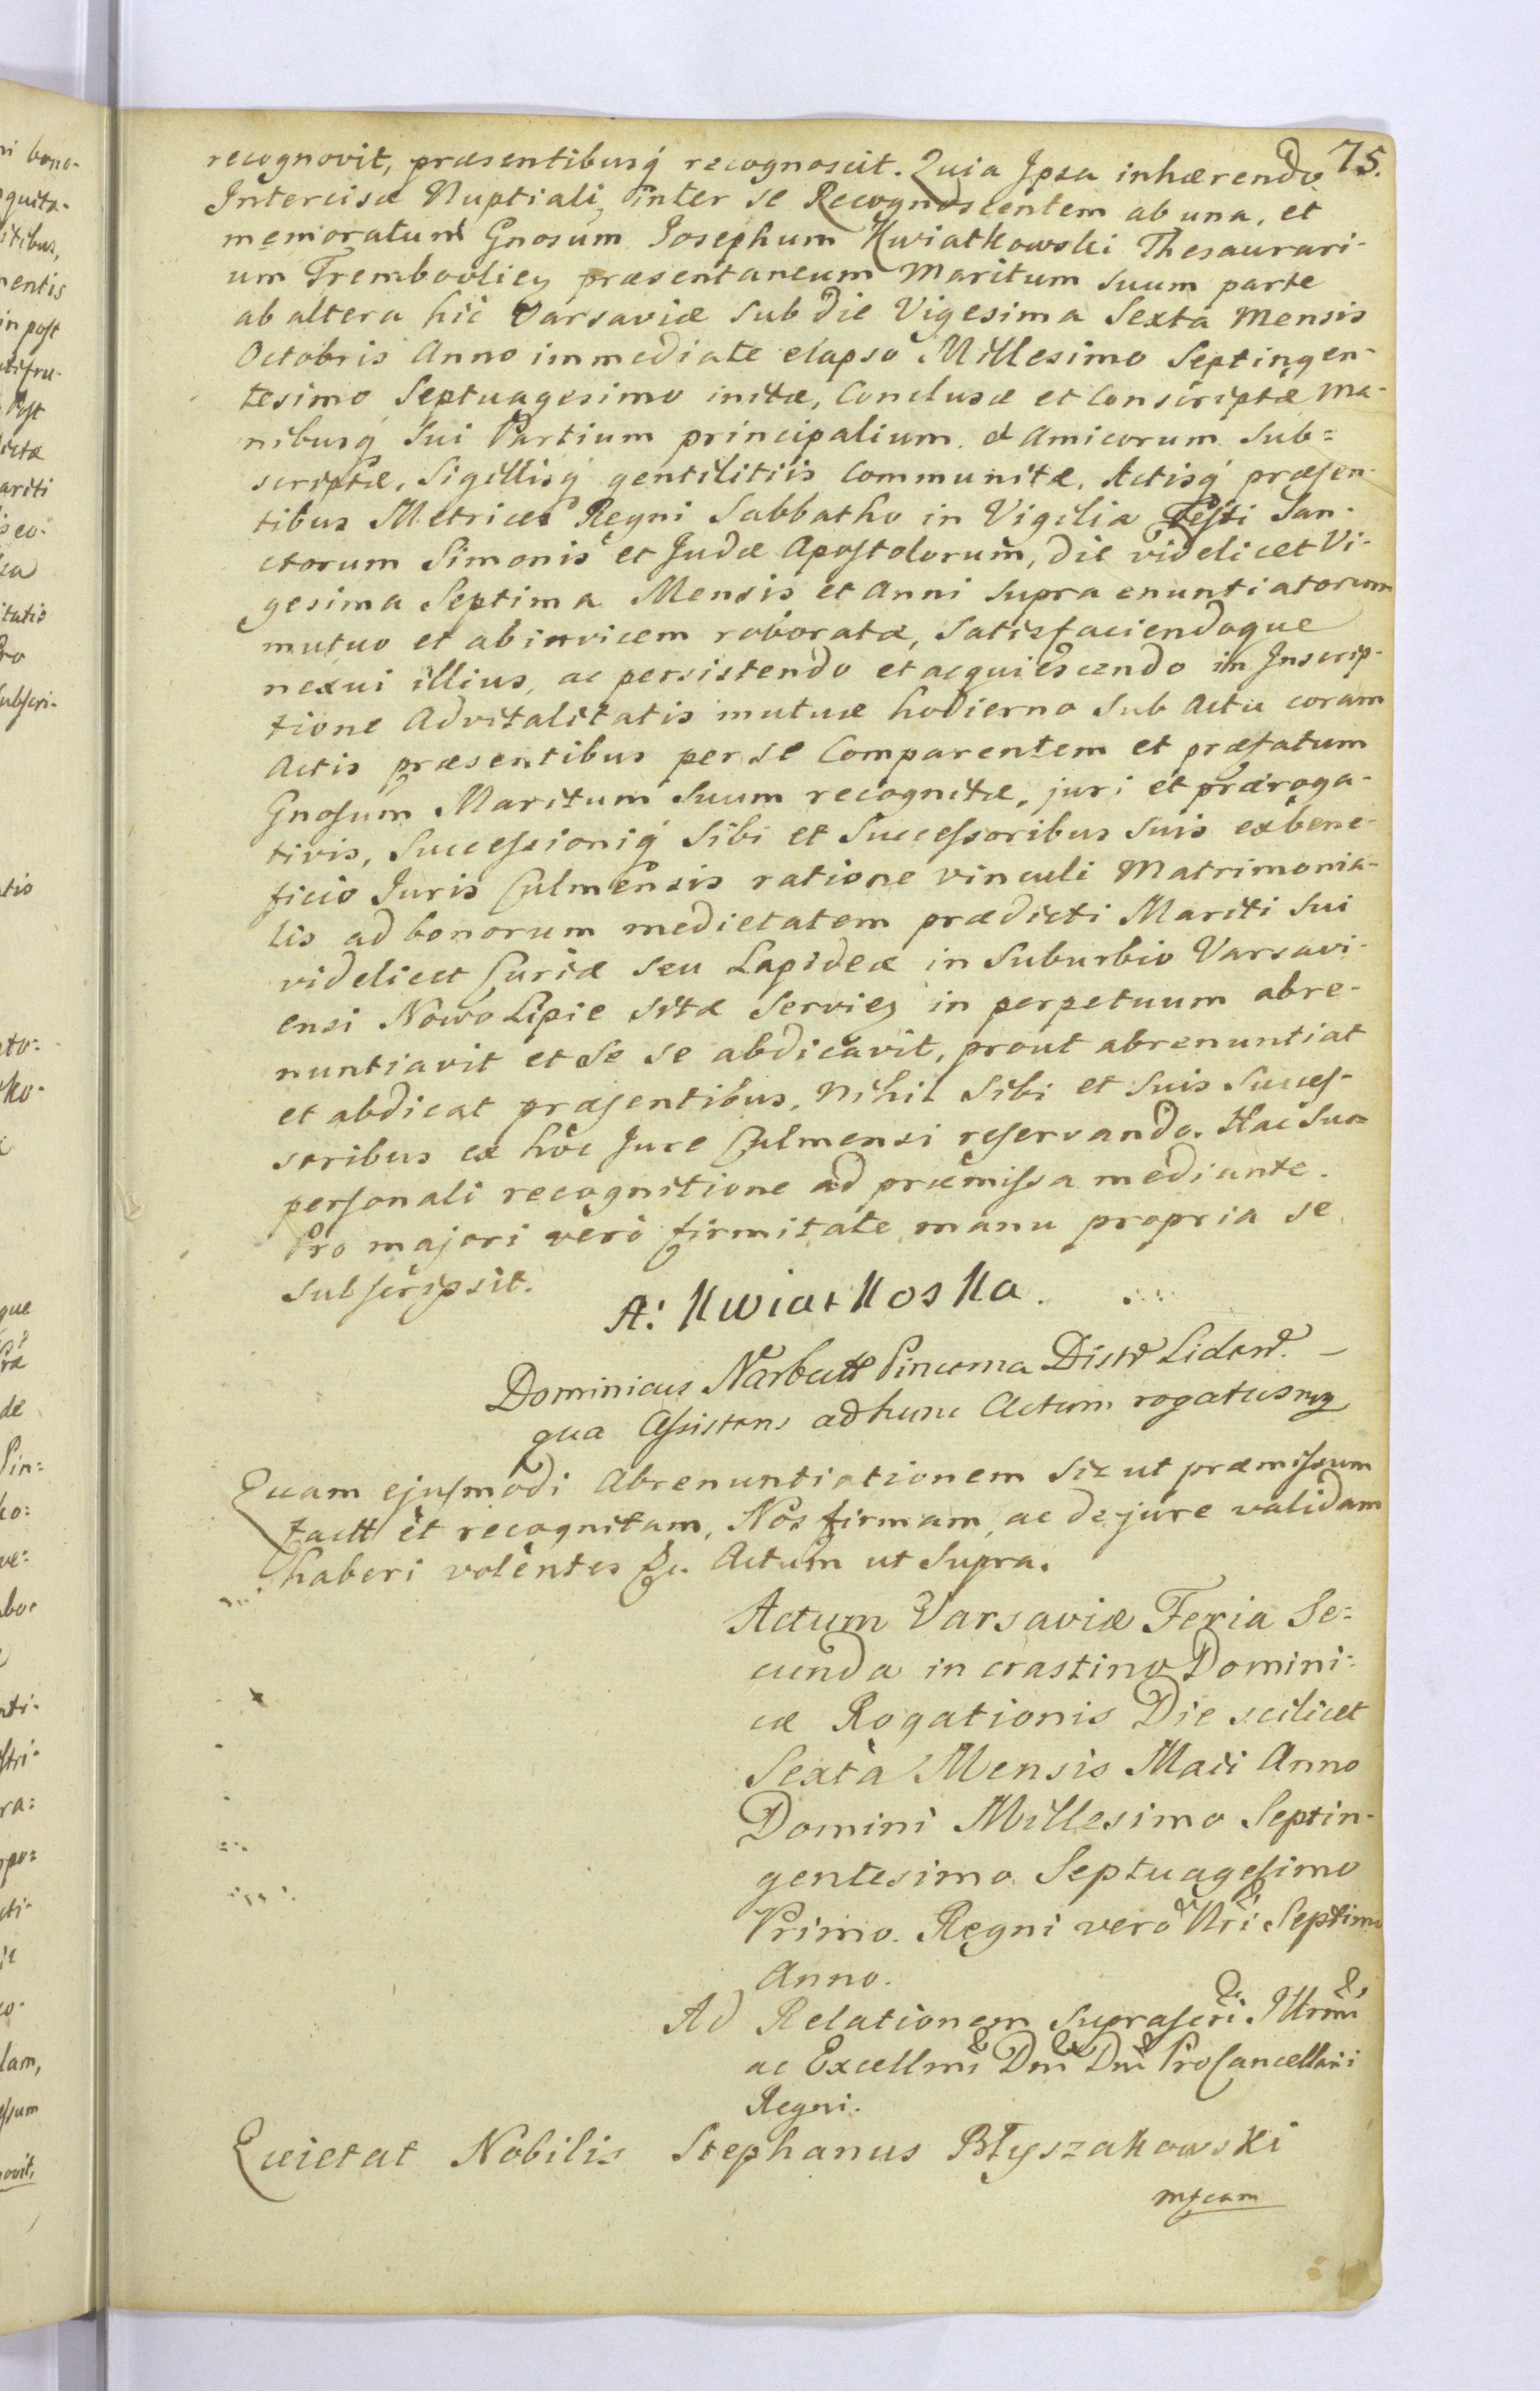 75.
recognovit, præsentibusq́ recognoscit. Quia Ipsa inhærendo
Intercisæ Nuptiali, inter se Recognoscentem ab una, et
memoratum Gnosum Josephum Kwiatkowski Thesaurari-
um Trembovlieñ præsentaneum Maritum suum parte
ab altera hic Varsaviæ sub die Vigesima Sexta Mensis
Octobris Anno immediate elapso Millesimo Septingen-
tesimo Septuagesimo initæ, Conclusæ et Conscriptæ ma-
nibusq́ sui Partium principalium et Amicorum Sub=
scriptæ, Sigillisq́ gentilitiis Communitæ, Actisq́ præsen-
tibus Metrices Regni Sabbatho in Vigilia Festi San-
ctorum Simonis et Judæ Apostolorum, die videlicet Vi-
gesima Septima Mensis et Anni supra enuntiatorum
mutuo et ab invicem roboratæ, Satisfaciendoque
nexui illius, ac persistendo et acquiescendo in Inscrip-
tione Advitalitatis mutuæ hodierno sub Actu coram
Actis præsentibus per se Comparentem et præfatum
Gnosum Maritum suum recognitæ, juri et præroga-
tivis, Successioniq́ Sibi et Successoribus suis ex bene-
ficio Juris Culmensis ratione vinculi Matrimonia-
lis ad bonorum medietatem prædicti Mariti sui
videlicet Curiæ seu Lapideæ in Suburbio Varsavi-
ensi Nowo Lipie sitæ servieñ in perpetuum abre-
nuntiavit et se se abdicavit, prout abrenuntiat
et abdicat præsentibus, nihil Sibi et suis Succes-
soribus ex hoc Jure Culmensi reservando. Hac sua
personali recognitione ad præmissa mediante.
Pro majori vero firmitate manu propria se
subscripsit.
A: Kwiatkoska.
Dominicus Narbutt Pincerna Distr Lidens. –
qua Assistens ad hunc Actum rogatus mp
Quam ejusmodi Abrenuntiationem sic ut præmissum
factt et recognitam, Nos firmam, ac de jure validam
haberi volentes &c. Actum ut Supra.
Actum Varsaviæ Feria Se=
cunda in crastino Domini=
cæ Rogationis Die scilicet
Sexta Mensis Maii Anno
Domini Millesimo Septin-
gentesimo Septuagesimo
Primo. Regni vero Nri Septimo
Anno.
Ad Relationem suprascri Illrmi
ac Excellmi Dni Dni ProCancellarii
Regni.
Quietat Nobilis Stephanus Błyszakowski
mfcam